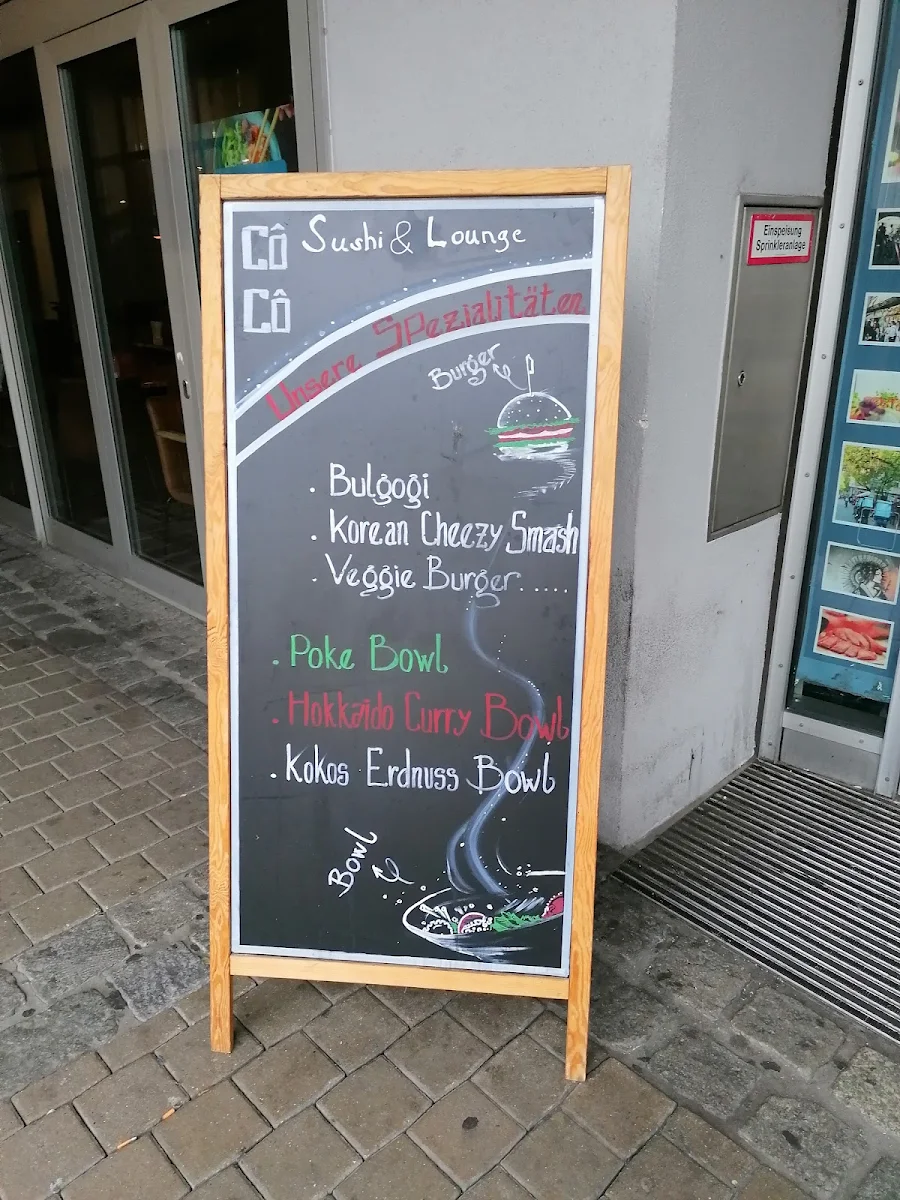 CÔ CÔ
Sushi & Lounge
Unsere Spezialitäten
Burger
. Bulgogi
. Korean Cheezy Smash
. Veggie Burger.....
. Poke Bowl
. Hokkaido Curry Bowl
. Kokos Erdnuss Bowl
Bowl
Einspeisung
Sprinkleranlage